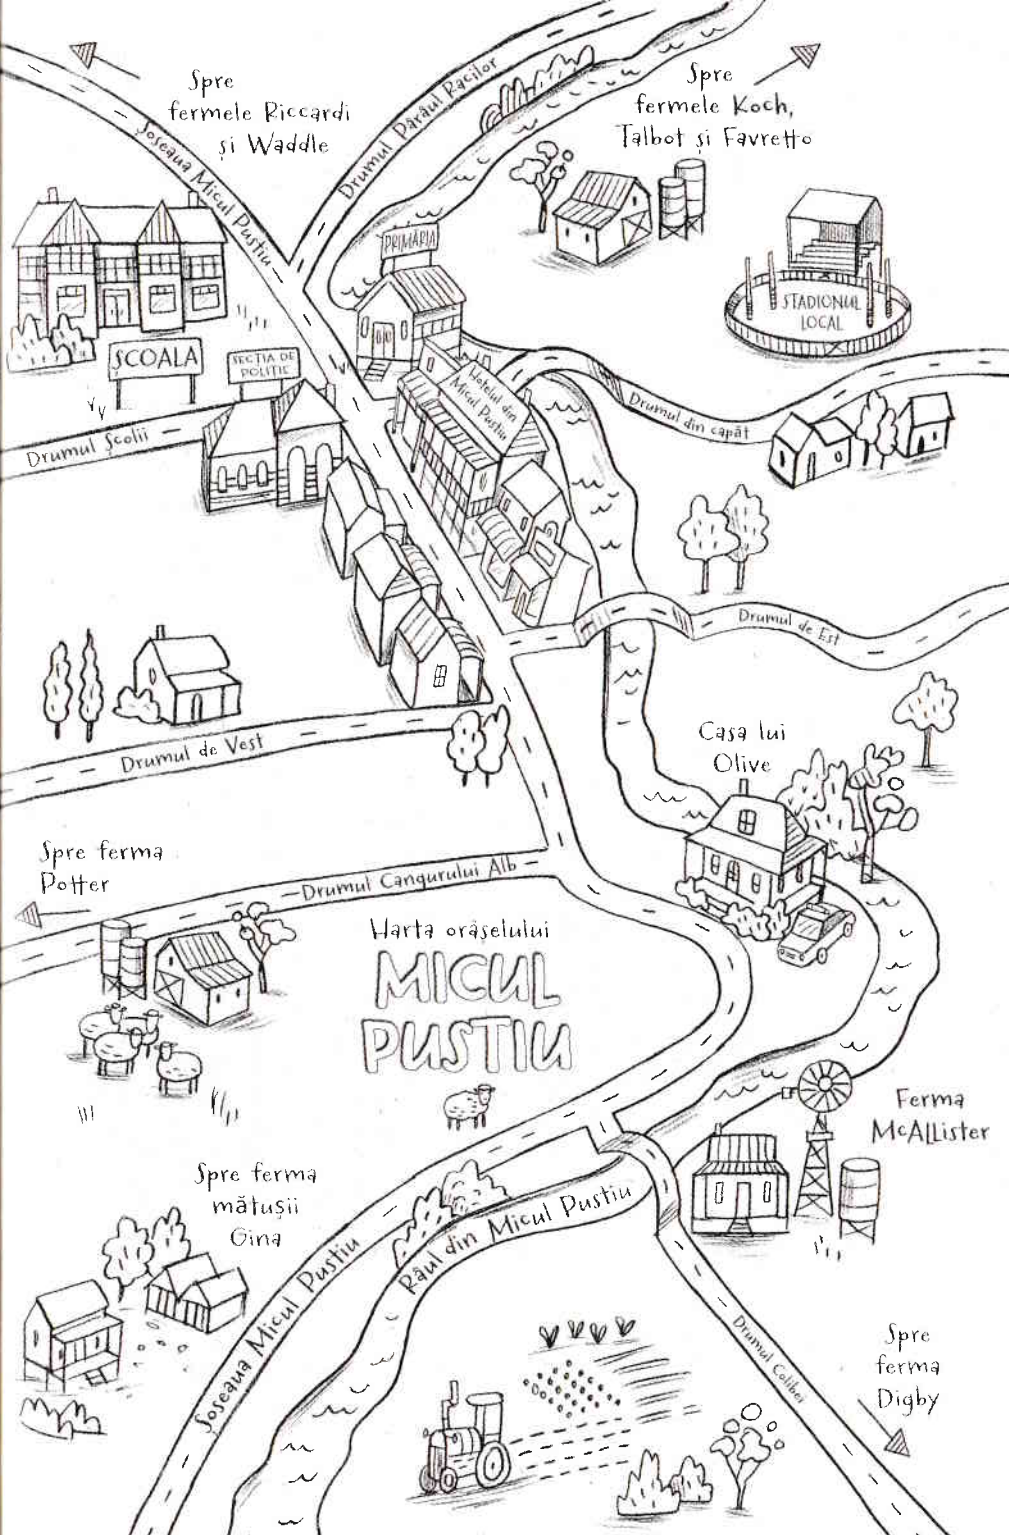 Spre
fermele Riccardi
și Waddle
Șoseaua Micul Pustiu
Drumul Pârâul Racilor
Spre
fermele Koch,
Talbot și Favretto
PRIMĂRIA
STADIONUL
LOCAL
ȘCOALA
SECȚIA DE
POLIȚIE
Drumul Școlii
Hotelul din
Micul Pustiu
Drumul din capăt
Drumul de Est
Drumul de Vest
Casa lui
Olive
Spre ferma
Potter
Drumul Cangurului Alb
Harta orășelului
MICUL
PUSTIU
Ferma
McALLister
Spre ferma
mătușii
Gina
Șoseaua Micul Pustiu
Râul din Micul Pustiu
Drumul Colibei
Spre
ferma
Digby